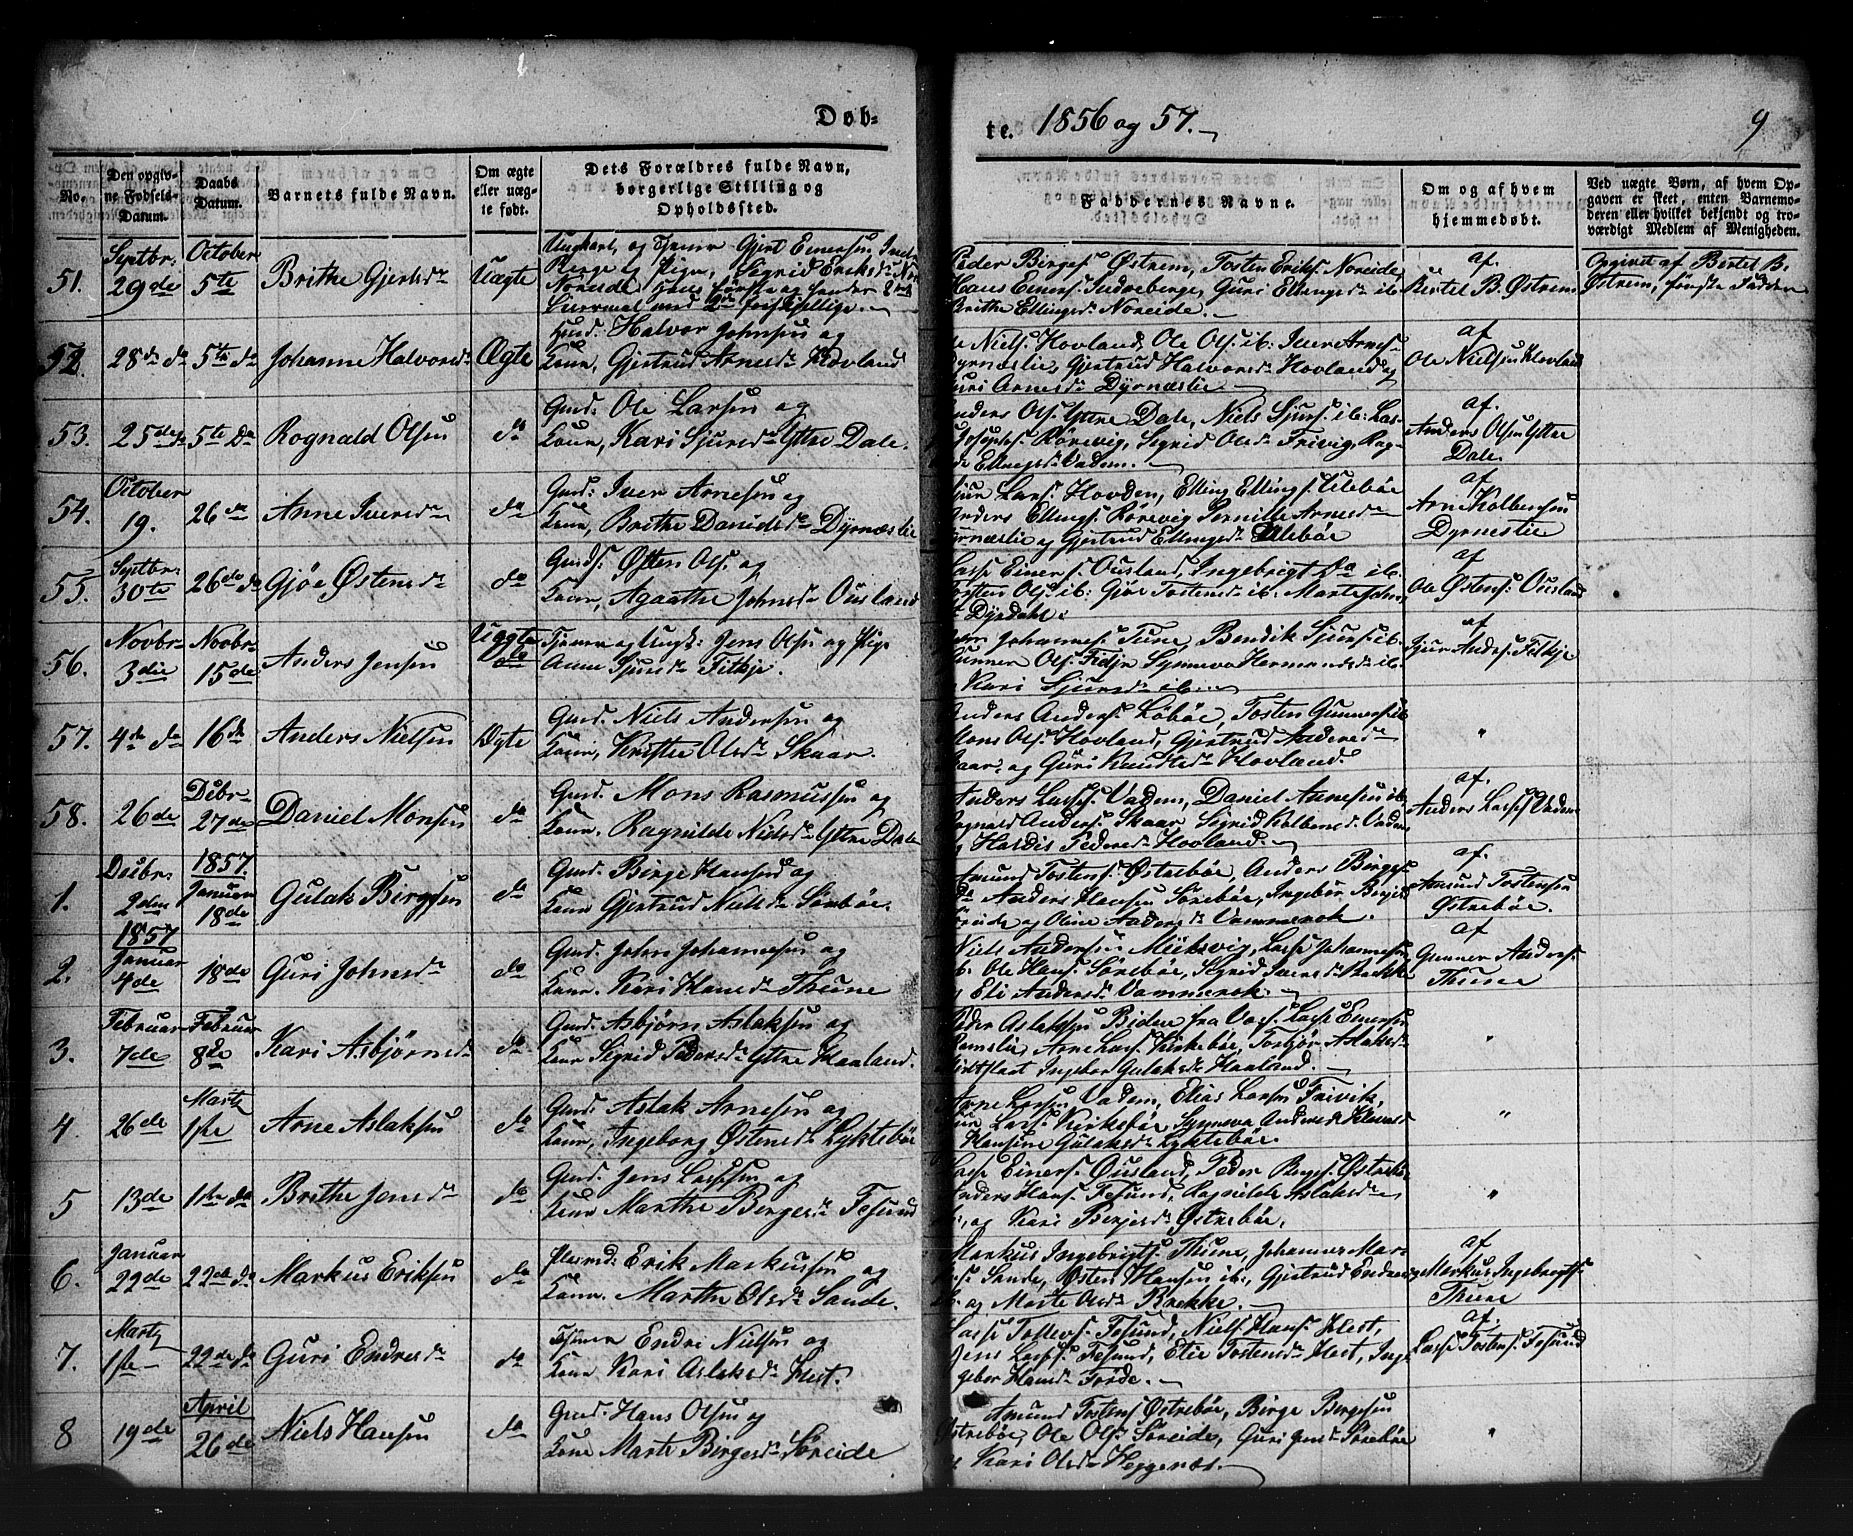 Døb-
te. 1856 og 57.
9
No.
Den opgiv-
ne Fødsels-
Datum.
Daabs
Datum.
Barnets fulde Navn.
Om ægte
eller uæg-
te født.
Dets Forældres fulde Navn,
borgerlige Stilling og
Opholdssted.
Faddernes Navne.
Om og af hvem
hjemmedøbt.
Ved uægte Børn, af hvem Op-
gaven er skeet, enten Barnemo-
deren eller hvilket bekjendt og tro-
værdigt Medlem af Menigheden.
51.
Septbr.
29de
October
5te
Brithe Gjertsdr
Uægte
Ungkarl og Tjener Gjert Einersen Indre
Berge og Pige, Sigrid Eriksdr
Noreide
Peder Birges. Østrem, Tosten Eriks. Noreide
Hans Einers. Indreberge, Guri Ellingsdr ib.
Brithe Ellingsdr Noreide.
af
Bertel B. Østrem
Opgivet af Bertel B.
Østrem, første Fadder
52.
28de do
5te do
Johanne Halvorsdr
Ægte
Gmd: Halvor Johnsen og
Kone, Gjertrud Arnesdr Hovland
Niels. Hovland, Ole Ols. ib: Iver Arnes.
Dyrnæslie, Gjertrud Halvorsdr Hovland og
Guri Arnesdr Dyrnæslie
af
Ole Nielsen Hovland
53.
25de do
5te do
Rognald Olsen
do
Gmd: Ole Larsen og
Kone, Kari Sjursdr Yttre Dale.
Anders Ols. Yttre Dale, Niels Sjurs. ib: Las-
Josephs. Rørevig, Sigrid Olsdr Frivig, Rag-
Ellingsdr Vadem.
af
Anders Olsen Yttre
Dale.
54.
October
19.
26de
Anne Iversdr
do
Gmd: Iver Arnesen og
Kone, Brithe Danielsdr Dyrnæslie
Sjur Lars. Hovden, Elling Ellings. Ulebøe
Anders Ellings. Rørevig Pernille Arnesdr
Dyrnæslie og Gjertrud Ellingsdr Ulebøe
af
Arne Kolbensen
Dyrneslie
55.
Septbr.
30te
26de do
Gjøe Østensdr
do
Gmds: Østen Ols. og
Kone, Agaathe Johnsdr Ousland
Lasse Einers. Ousland, Ingebrigt Do ib.
Tosten Ols. ib: Gjøe Tostensdr ib. Marte Johns
Dyrdahl.
af
Ole Østens. Ousland
56.
Novbr.
3die
Novbr.
15de
Anders Jensen
Uægte
Tjener og Ungk: Jens Olsen og Pige
Anne Sjursdr Fitkje.
Johannes. Tune, Bendik Sjurs. ib.
Gunner Ols. Fidje Synneva Hermundsdr ib.
Kari Sjursdr ib.
af
Sjur Anders. Fitkje
57.
4de do
16de
Anders Nielsen
Ægte
Gmd. Niels Andersen og
Kone, Kristie Olsdr Skaar.
Anders Anders. Løbøe, Tosten Gunners. ib
Mons Ols. Hovland, Gjertrud Andersdr
Skaar, og Guri Knudtsdr Hovland.
"
58.
26de
Debr.
27de
Daniel Monsen
do
Gmd. Mons Rasmussen og
Kone. Ragnilde Nielsdr Yttre Dale
Anders Lasses. Vadem, Daniel Annesen ib.
Rognald Anders. Skaar Sigrid Kolbensdr Vadem
og Hardis Pedersdr Hovland.
af.
Anders Lasses. Vadem
1.
Debr.
2den
1857.
Januar
18de
Gulak Birgesen
do
Gmd. Birge Hansen og
Kone Gjertrud Nielsdr Sørebøe.
Amund Tostens. Østrebøe, Anders Birges.
do Anders Hansen Sørebøe, Ingebør Birges
og Oline Andersdr Vammerok.
af.
Amund Tostensen
Østrebøe.
2.
1857
Januar
4de
18de
Guri Johnsdr
do
Gmd. John Johannesen og
Kone. Kari Hansdr Thune
Niels Andersen Miiksvig, Lasse Johannesen
ib. Ole Hans. Sørebøe, Sigrid Iversdr Brekke
og Eli Andersdr Vammerok.
af
Gunner Anders.
Thune
3.
Februar
7de
Februar
8de
Kari Asbjørnsdr
do
Gmd. Asbjørn Aslaksen og
Kone Sigrid Pedersdr Yttre Haaland.
Peder Aslaksen Biden fra Vos. Lasse Einersen
Ramslie, Arne Lars. Kirkebøe, Torbjør Aslaksdr
Ingebor Gulaksdr Haaland.
"
4.
26de
Martz
1ste
Arne Aslaksen
do
Gmd: Aslak Arnesen og
Kone, Ingeborg Østensdr Lyktebøe
Arne Larsen Vadem, Elias Larsen Frivik,
Lars. Kirkebøe, Synneva Andersdr
Hansine Gulaksdr Lyktebøe.
"
5
13de
1ste do
Brithe Jensdr
do
Gmd. Jens Lassesen og
Kone Marthe Bergesdr Fesund
Lasse Einers. Ousland, Peder Birges. Østrebøe,
Anders Hans. Fesund, Ragnilde Aslaksdr
ib., og Kari Bergesdr Østrebøe.
"
6.
Januar
22de
22de do
Markus Eriksen
do
Plasmd: Erik Markussen og
Kone. Marthe Olsdr Sande.
Markus Ingebrigts. Thune, Johannes Mar-
kus. Sande, Østen Hansen ib., Gjertrud Endres
ib. og Marte Olsdr Brekke.
af
Markus Ingebrigts.
Thune
7.
Martz
1ste
22de do
Guri Endresdr
do
Tjener Endre Nielsen og
Kone Kari Aslaksdr Hest.
Lasse Tollevs. Fesund, Niels Hans. Hest,
Jens Lasses. Fesund, Elie Tostensdr Hest, Inge-
gebor Hansdr Førde.
af.
Lasse Tostens. Fesund
8
19de
April
26de
Niels Hansen
do
Gmd. Hans Olsen og
Kone Marte Birgesdr Søreide
Amund Tostens. Østrebøe, Birge Bergesen
Østrebøe, Ole Ols. Søreide, Guri Jensdr Sørebøe
og Kari Olsdr Heggenæs.
"